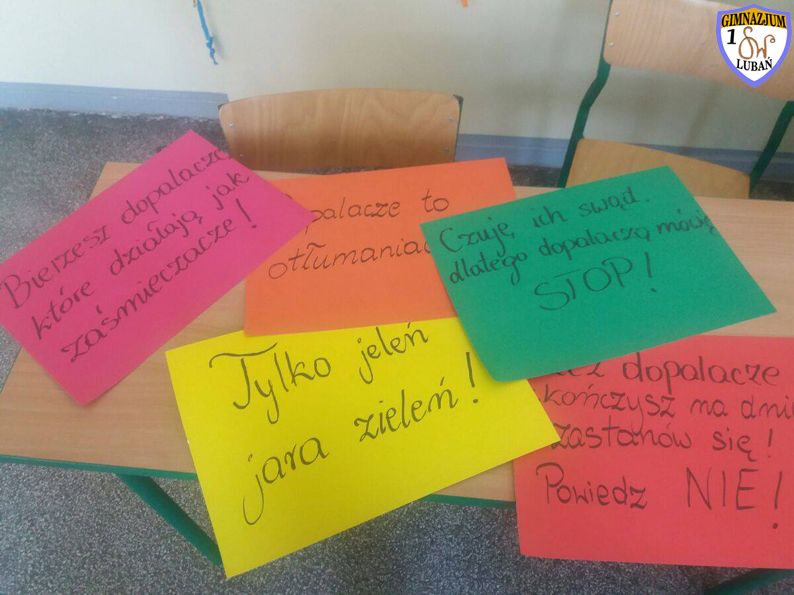 GIMNAZJUM
1
LUBAŃ
Bierzesz dopalacze
które działają jak
zaśmiecacze!
to
Czuję ich swąd,
dlatego dopalaczą mówię
STOP!
Tylko jeleń
jara zieleń!
dopalacze
kończysz na dnie
zastanów się!
Powiedz NIE!